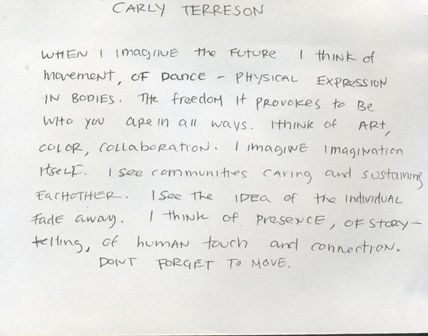 CARLY TERRESON
WHEN I IMAGINE the FUTURE I THINK of
movement, OF Dance – PHYSICAL EXPRESSION
IN BODIES. The freedom It PROVOKES to Be
WHO you are in all ways. I think of ART,
COLOR, COLLABORATION. I IMAGINE IMAGINATION
ItSELF. I see communities caring and sustaining
EACHOTHER. I See The IDEA of the INDIVIDUAL
Fade away. I THINK of presence, OF STORY–
telling, of human touch and connection.
DONT FORGET TO MOVE.